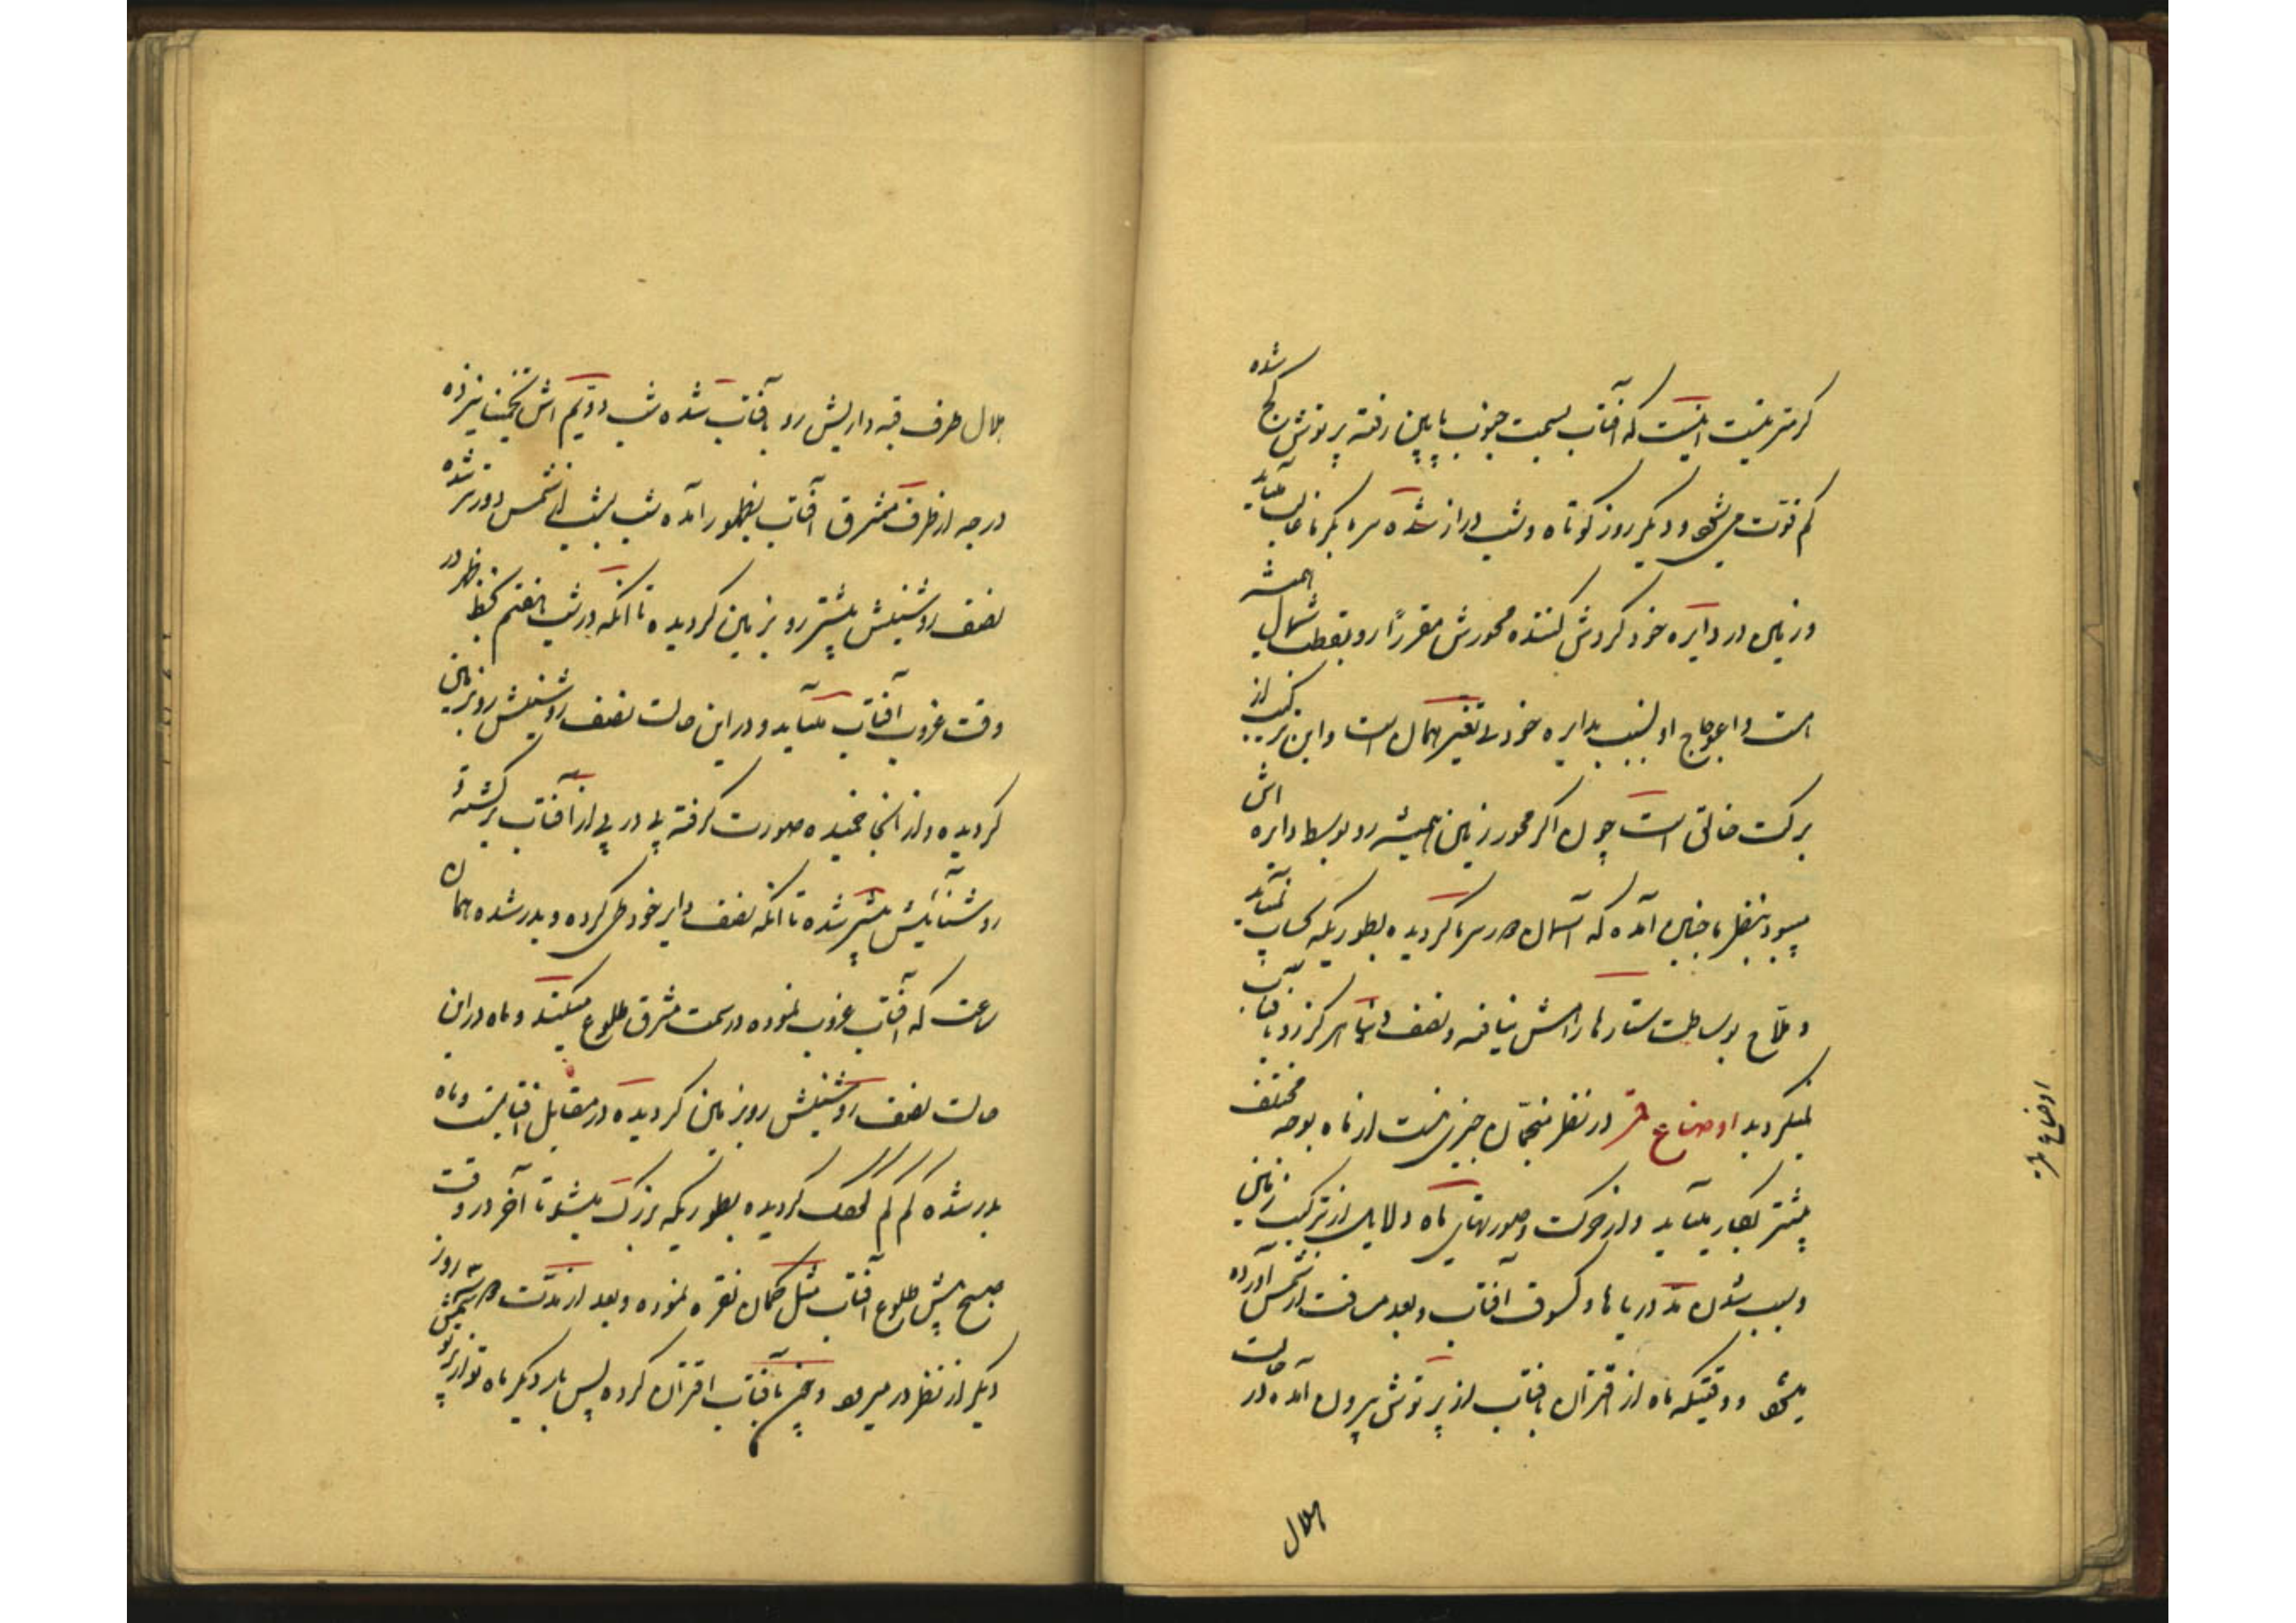 گرمتر نیست اینست که آفتاب بسمت جنوب پایین رفته پرتوش کج شده
کم قوّت میشود و دیگر روز کوتاه و شب دراز شده سرما بگرما غالب میاید
و زمین در دایره خود گردش کننده محورش مقرراً رو بقطب شمال همیشه
است و اعوجاج او بنسبت بدایره خود لا تغیر همان است و این ترکیب از
برکت خالق است چون اگر محور زمین همیشه رو بوسط دایره اش
میبود بنظر ما چنین آمده که آسمان در سر ما گردیده بطوریکه بحساب نمیاید
و ملّاح بوساطت ستارها راهش نیافته و نصف دنیا هرگز رو بآفتاب
نمیگردید اوضاع قمر در نظر منجمان چیزی نیست از ماه بوجه مختلف
بیشتر بکار میاید و از حرکت و صورتهای ماه دلایل از ترکیب زمین
و سبب شدن مدّ دریاها و کسوف آفتاب و بعد مسافت از شمس آورده
میشود و وقتیکه ماه از قران بافتاب از پرتوش بیرون آمده در حالت
هلال
اوضاع قمر
هلال طرف قبه داریش رو بآفتاب شده شب دویّم اش تخمیناً سیزده
درجه از طرف مشرق آفتاب بظهور آمده شب بشب از شمس دورتر شده
نصف روشنیش بیشتر رو بزمین گردیده تا آنکه در شب هفتم بخط ظهر در
وقت غروب آفتاب میاید و در این حالت نصف روشنیش رو بزمین
گردیده و از آنجا خمیده صورت گرفته پی در پی از آفتاب برگشته
روشنائیش بیشتر شده تا آنکه نصف دایر خود طی کرده و بدر شده همان
ساعت که آفتاب غروب نموده در سمت مشرق طلوع میکند و ماه در این
حالت نصف روشنیش رو بزمین گردیده در مقابل آفتابست و ماه
بدر شده کم کم کوچک گردیده بطوریکه بزرگ میشود تا آخر در وقت
صبح پیش طلوع آفتاب مثل کمان نقره نموده و بعد از مدّت سه روز
دیگر از نظر در میرود و چون بآفتاب اقتران کرده پس بار دیگر ماه نو از پرتو شمس